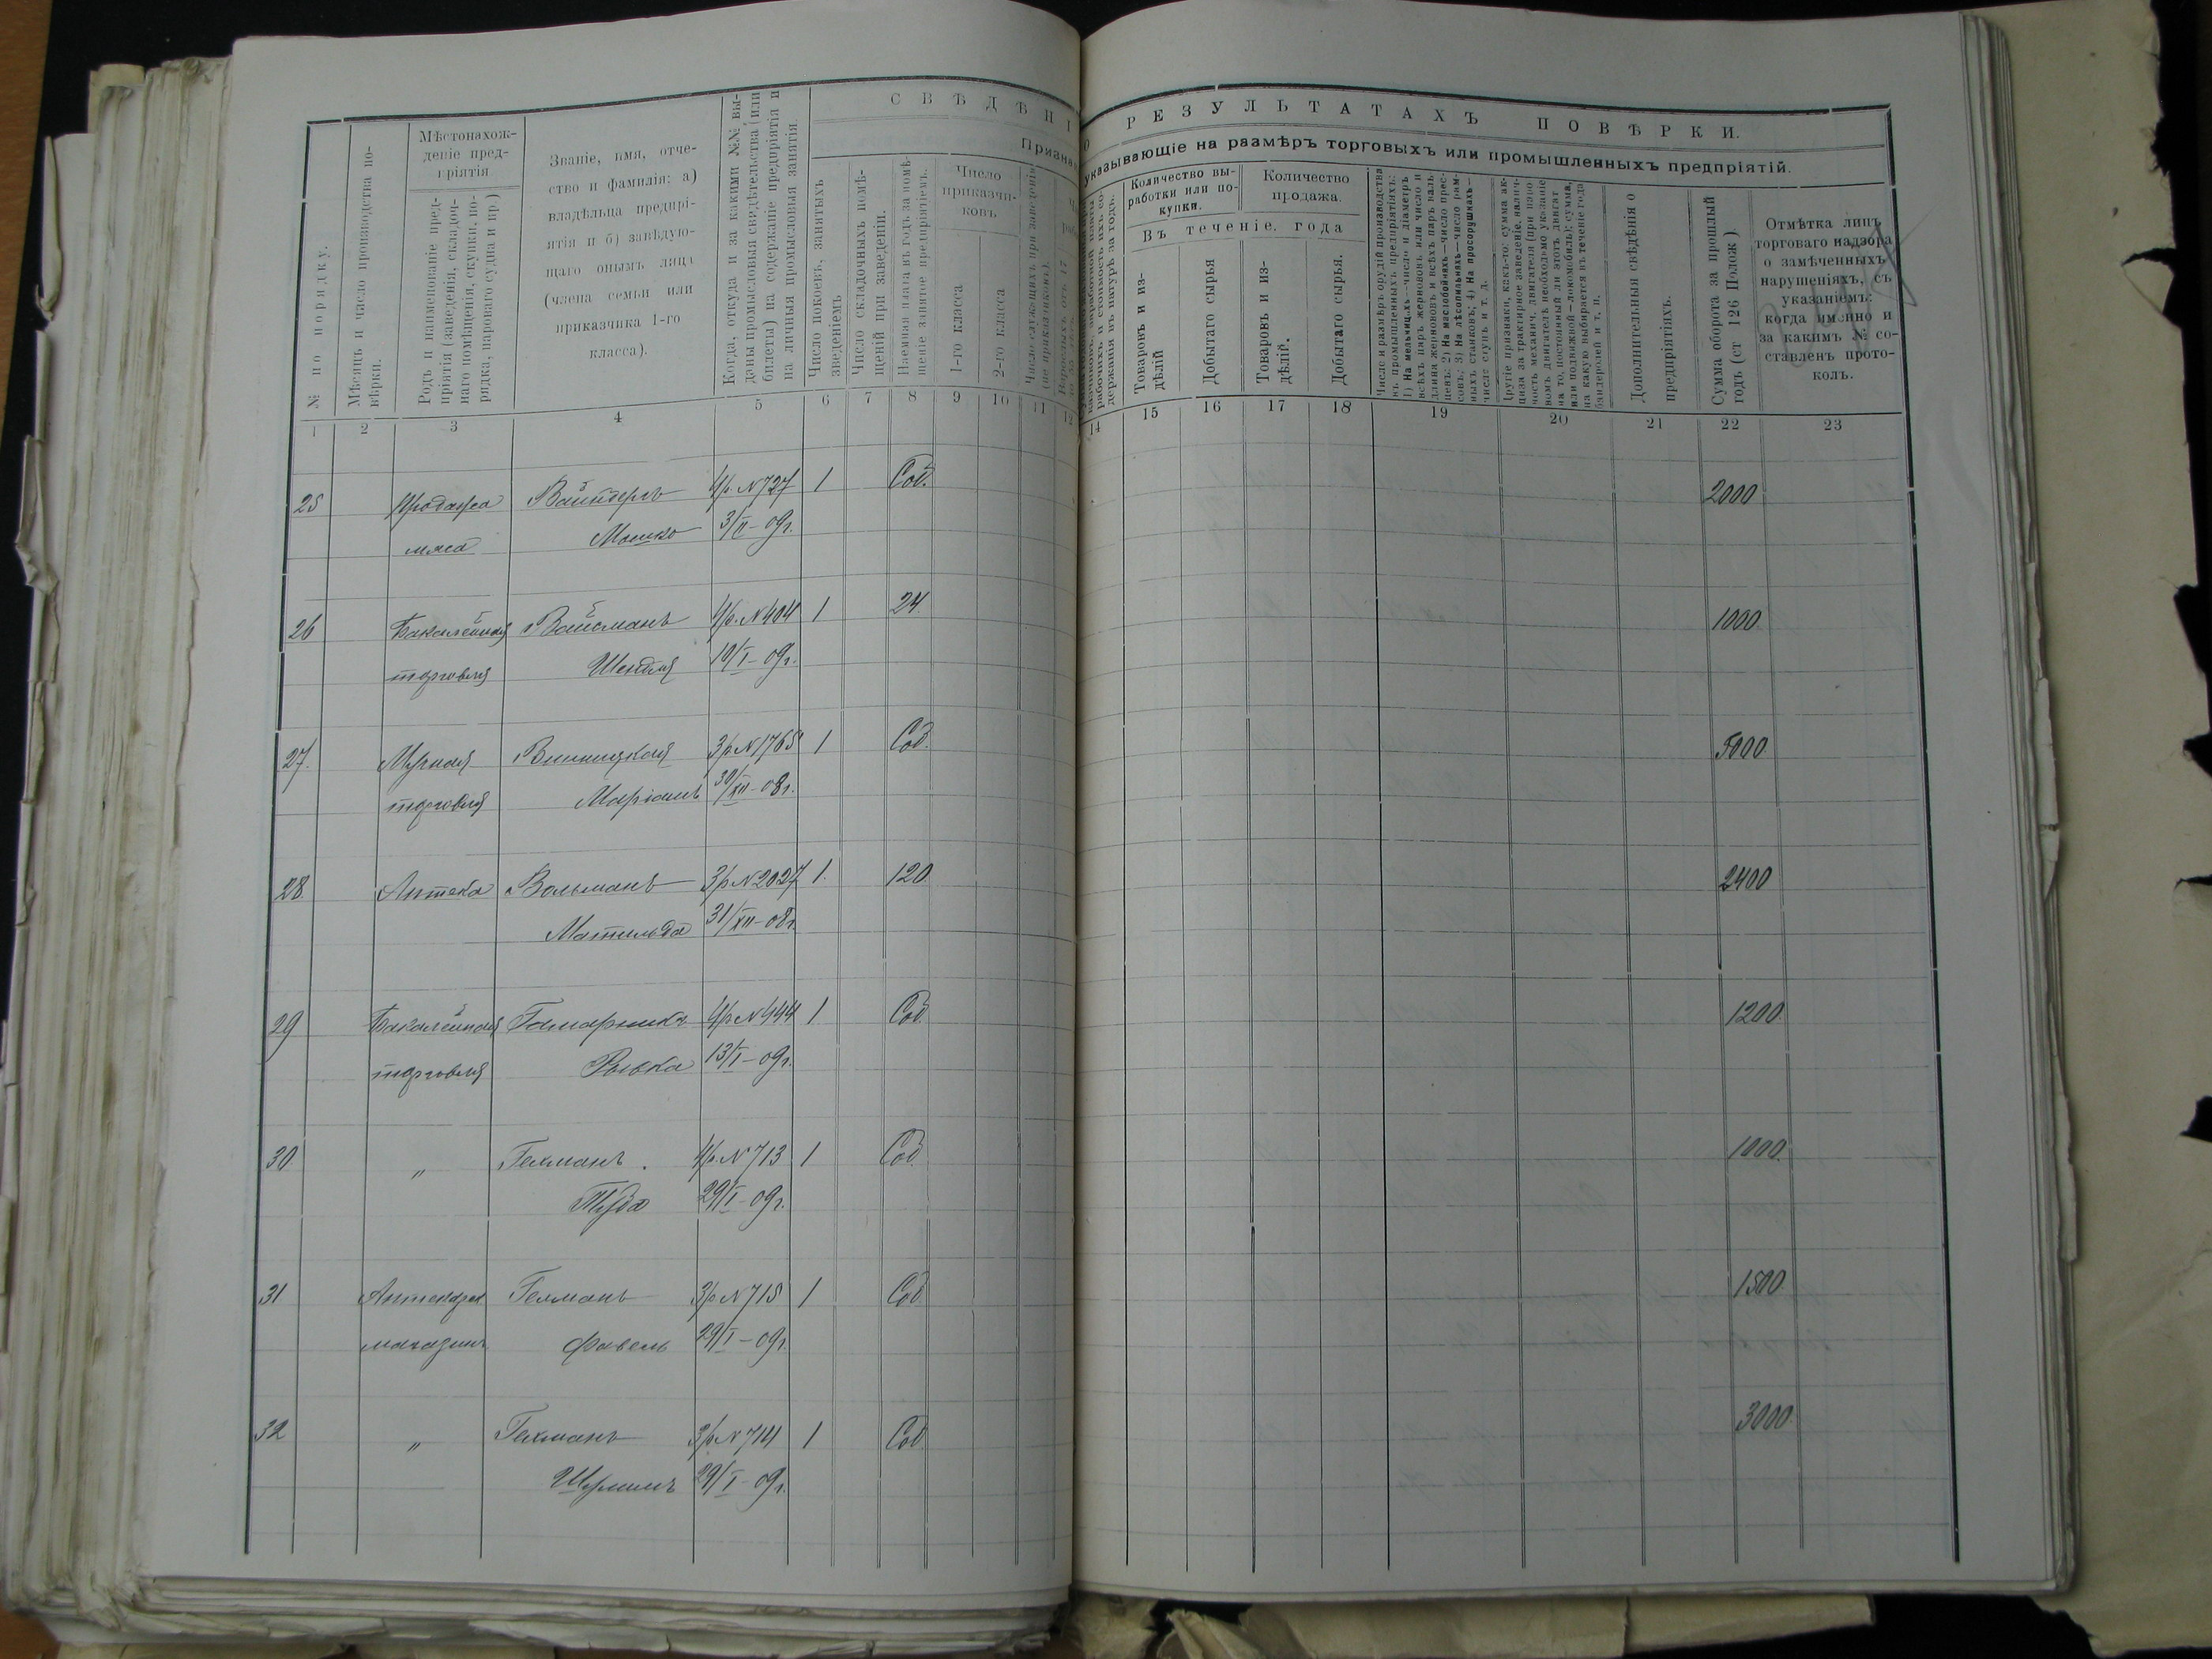 СВѢДѢНІ
О РЕЗУЛЬТАТАХЪ ПОВѢРКИ.
Признак
указывающіе на размѣръ торговыхъ или промышленныхъ предпріятій.
№ по порядку.
Мѣсяцъ и число производства по-
вѣрки.
Мѣстонахож-
деніе пред-
пріятія
Родъ и наименованіе пред-
пріятія (заведенія, складоч-
наго помѣщенія, скупки, по-
ряда, пароваго судна и пр.)
Званіе, имя, отче-
ство и фамилія: а)
владѣльца предпрі-
ятія и б) завѣдую-
щаго онымъ лица
(члена семьи или
приказчика 1-го
класса).
Когда, откуда и за какими №№ вы-
даны промысловыя свидѣтельства (или
билеты) на содержаніе предпріятія и
на личныя промысловыя занятія.
Число покоевъ, занятыхъ
заведеніемъ
Число складочныхъ помѣ-
щеній при заведеніи.
Наемная плата въ годъ за помѣ-
щеніе занятое предпріятіемъ.
Число
приказчи-
ковъ
1-го класса
2-го класса
Число служащихъ при заведеніи
(не приказчиковъ).
Количество вы-
работки или по-
купки.
Количество
продажа.
Въ теченіе года
Товаровъ и из-
дѣлій
Добытаго сырья
Товаровъ и из-
дѣлій.
Добытаго сырья.
Число и размѣръ орудій производства
въ промышленныхъ предпріятіяхъ:
1) На мельницахъ—число и діаметръ
всѣхъ паръ жернововъ или число и
длина жернововъ и всѣхъ паръ валь
цевъ; 2) На маслобойняхъ—число прес-
совъ; 3) На лѣсопильняхъ—число рам-
ныхъ станковъ; 4) На просорушкахъ—
число ступъ и т. д.
Другіе признаки, какъ-то: сумма ак-
циза за трактирное заведеніе, налич-
ность механич. двигателя (при паро-
вомъ двигателѣ необходимо указаніе
на то, постоянный ли этотъ двигат
или подвижной—локомобиль); сумма,
на какую выбирается въ теченіе года
бандеролей и т. п.
Дополнительныя свѣдѣнія о
предпріятіяхъ.
Сумма оборота за прошлый
годъ (ст 126 Полож)
Отмѣтка лицъ
торговаго надзора
о замѣченныхъ
нарушеніяхъ, съ
указаніемъ:
когда именно и
за какимъ № со-
ставленъ прото-
колъ.
1 2 3 4 5 6 7 8 9 10 11 12 14 15 16 17 18 19 20 21 22 23
25 Продажа Вайнберъ 4р. N 727 1 Соб. 2000
мяса Мошко 3/II-09г.
26 Бакалейная Вайсманъ 4р. N 404 1 24. 1000
торговля Шендля 10/I-09г.
27. Мучная Винницкая 3р N 1765 1 Соб. 5000
торговля Маріамъ 30/XII-08г.
28. Аптека Вольманъ 3р N 2027 1. 120 2400
Матильда 31/XII-08г.
29 Бакалейная Гамарникъ 4р N 444 1 Соб. 1200.
торговля Рывка 13/I-09г.
30 " Гехманъ. 4р. N 713 1 Соб. 1000.
29/I-09г.
31 Аптекарск Гехманъ 3р N 715 1 Соб 1500.
магазинъ Фавель 29/I-09г.
32 " Гехманъ 3р N 714 1 Соб. 3000.
Шулимъ 29/I-09г.